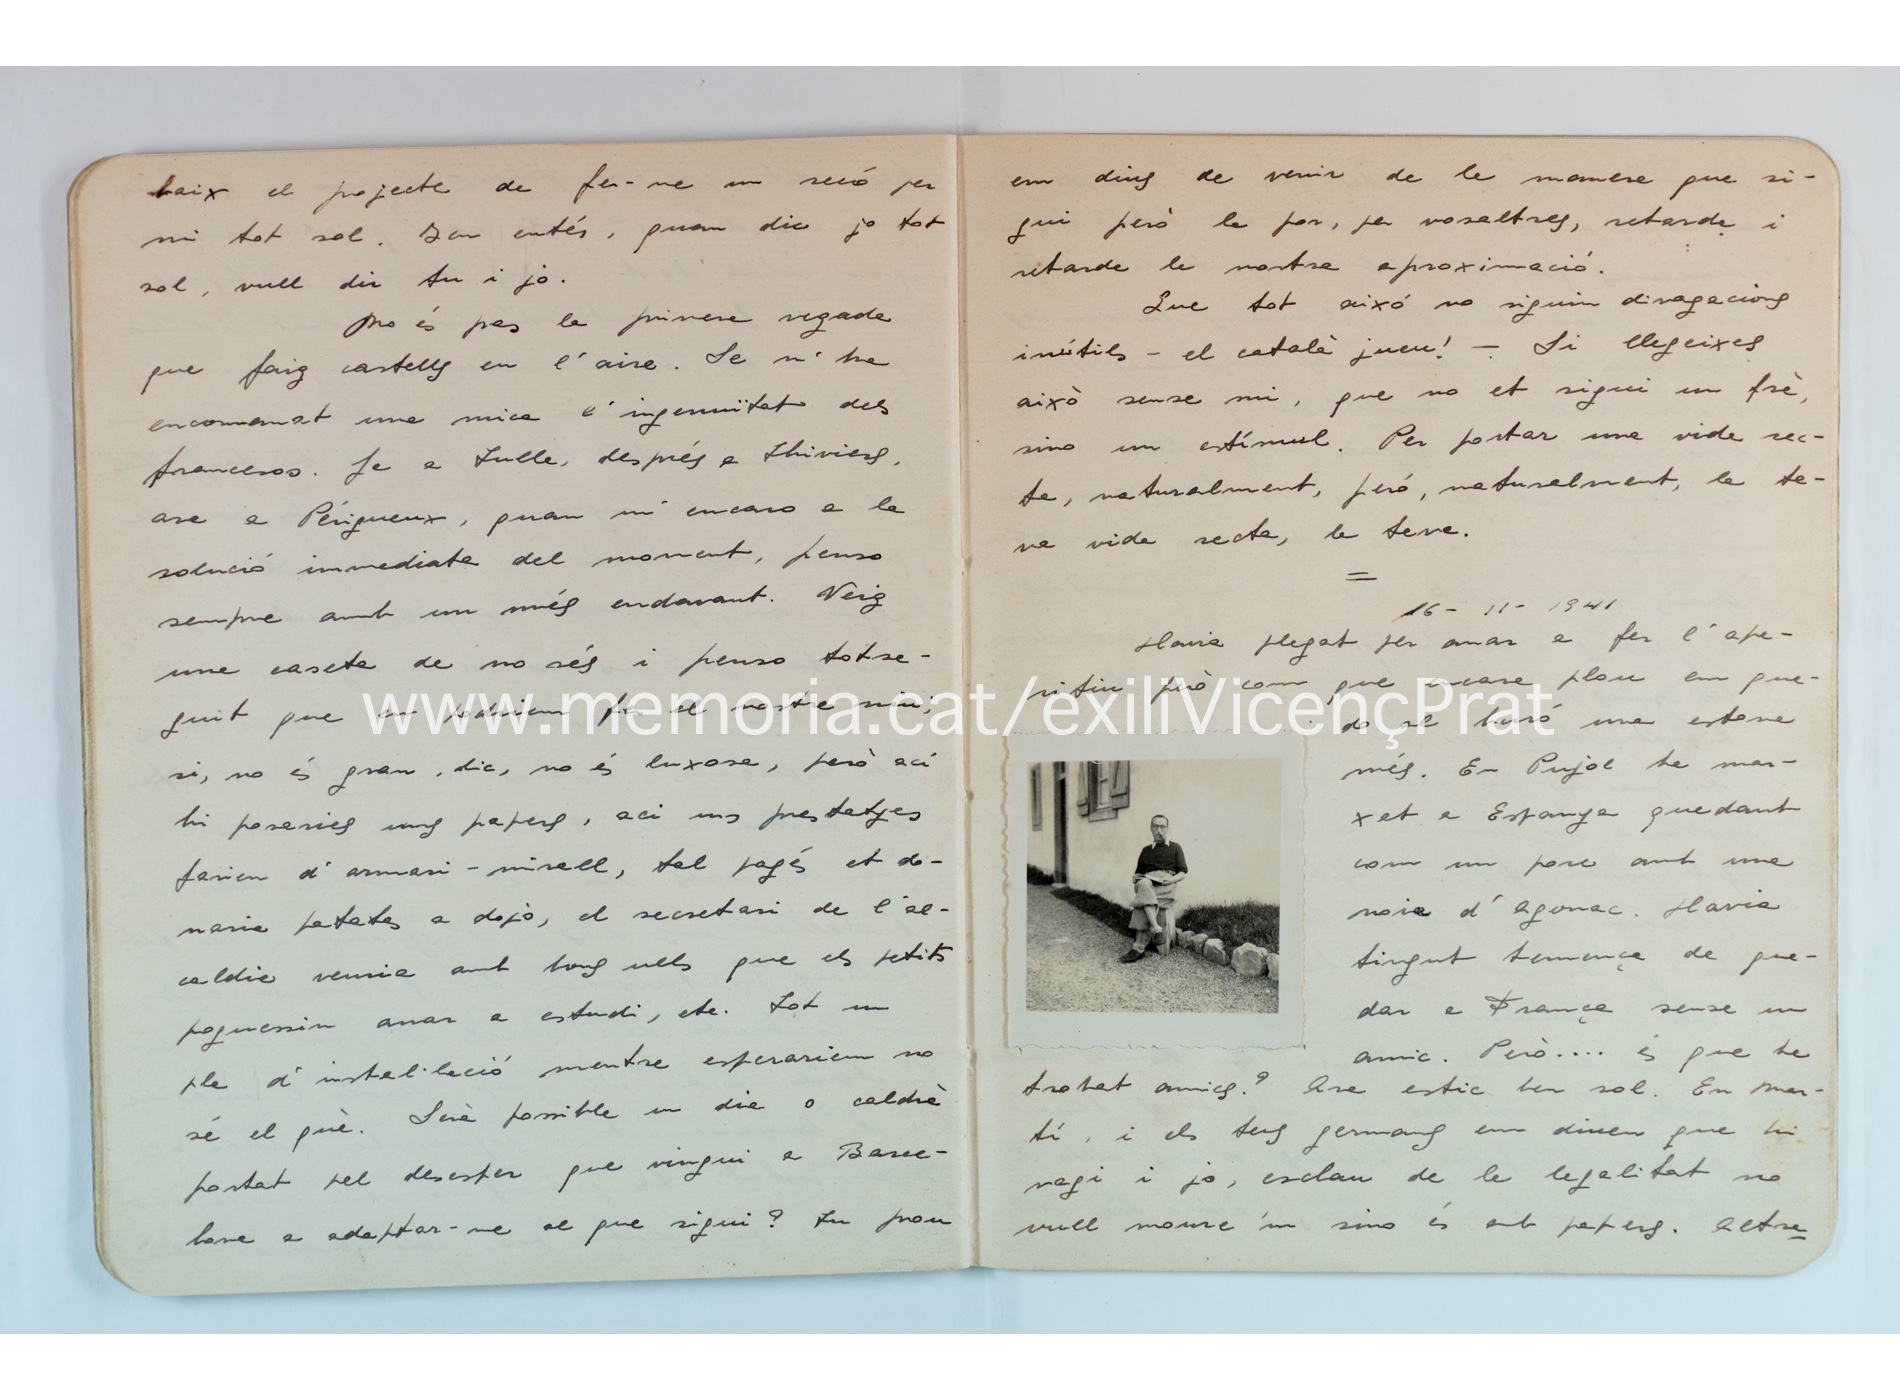 baix el projecte de fer-ne un recó per
mi tot sol. Ben entés, quan dic jo tot
sol, vull dir tu i jo.
No és pas la primera vegada
que faig castells en l'aire. Se m'ha
encomanat una mica l'ingenuïtat dels
francesos. Ja a Tulle, després a Thiviers,
ara a Périgueux, quan m'encaro a la
solució immediata del moment, penso
sempre amb un més endavant. Veig
una caseta de no rés i penso totse-
guit que en podriem fer el nostre niu;
si, no és gran, dic, no és luxosa, però ací
hi posaries uns papers, ací uns prestatges
farien d'armari-mirall, tal pagés et do-
naria patates a dojo, el secretari de l'al-
caldia veuria amb bons ulls que els petits
poguessin anar a estudi, etc. Tot un
pla d'instal·lació mentre esperariem no
sé el què. Serà possible un dia o caldrà
portat pel desesper que vingui a Barce-
lona a adaptar-me al que sigui? Tu prou
em dius de venir de la manera que si-
gui però la por, per vosaltres, retarda i
retarda la nostra aproximació.
Que tot aixó no siguin divagacions
inútils - el català jueu! - Si llegeixes
això sense mi, que no et sigui un frè,
sino un estímul. Per portar una vida rec-
ta, naturalment, peró, naturalment, la te-
va vida recta, la teva.
=
16 - 11 - 1941
Havia plegat per anar a fer l'ape-
ritiu però com que encara plou em que-
do al buró una estona
més. En Pujol ha mar-
xat a Espanya quedant
com un porc amb una
noia d'Agonac. Havia
tingut temença de que-
dar a França sense un
amic. Però.... és que he
trobat amics? Ara estic ben sol. En Mar-
tí, i els teus germans em diuen que hi
vagi i jo, esclau de la legalitat no
vull moure'm sino és amb papers. Altra
www.memoria.cat/exiliVicençPrat